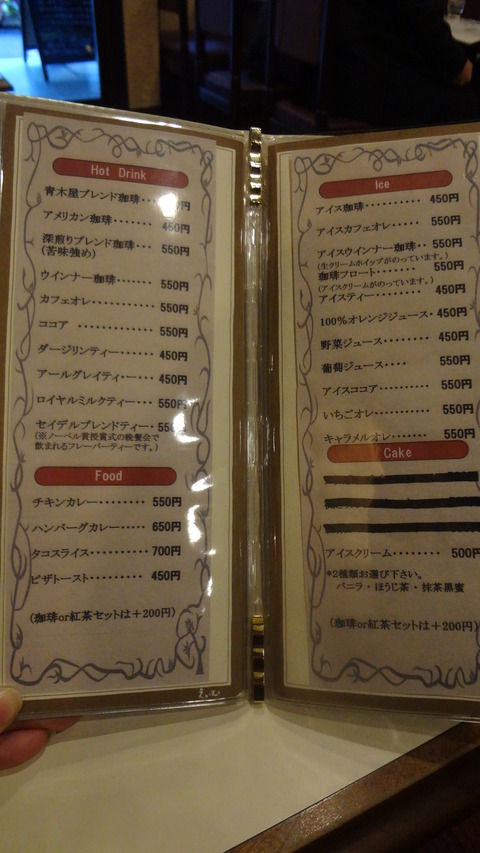 Hot Drink
青木屋ブレンド珈琲・・ 円
アメリカン珈琲・・・・・・・ 450円
深煎りブレンド珈琲・・・ 550円
(苦味強め)
ウインナー珈琲・・・・・・ 550円
カフェオレ・・・・・・・・・・ 550円
ココア ・・・・・・・・・・・・ 550円
ダージリンティー・・・・・ 450円
アールグレイティ・・・・ 450円
ロイヤルミルクティー・・・ 550円
セイデルブレンドティー・・ 550円
(※ノーベル賞授賞式の晩餐会で
飲まれるフレーバーティーです。)
Food
チキンカレー・・・・・・・・ 550円
ハンバーグカレー・・・・・ 650円
タコスライス・・・・・・・・・・ 700円
ピザトースト・・・・・・・・ 450円
(珈琲or紅茶セットは+200円)
Ice
アイス珈琲・・・・・・・・・・ 450円
アイスカフェオレ・・・・・・ 550円
アイスウインナー珈琲・・ 550円
(生クリームホイップがのっています。)
珈琲フロート・・・・・・・・ 550円
(アイスクリームがのっています。)
アイスティー・・・・・・・・・ 450円
100%オレンジジュース・ 450円
野菜ジュース・・・・・・・・ 450円
葡萄ジュース・・・・ 550円
アイスココア・・・・・・・・・・ 550円
いちごオレ・・・・・・・・・・ 550円
キャラメルオレ・・・・・・・ 550円
Cake
アイスクリーム・・・・・・・・ 500円
*2種類お選び下さい。
バニラ・ほうじ茶・抹茶黒蜜
(珈琲or紅茶セットは+200円)